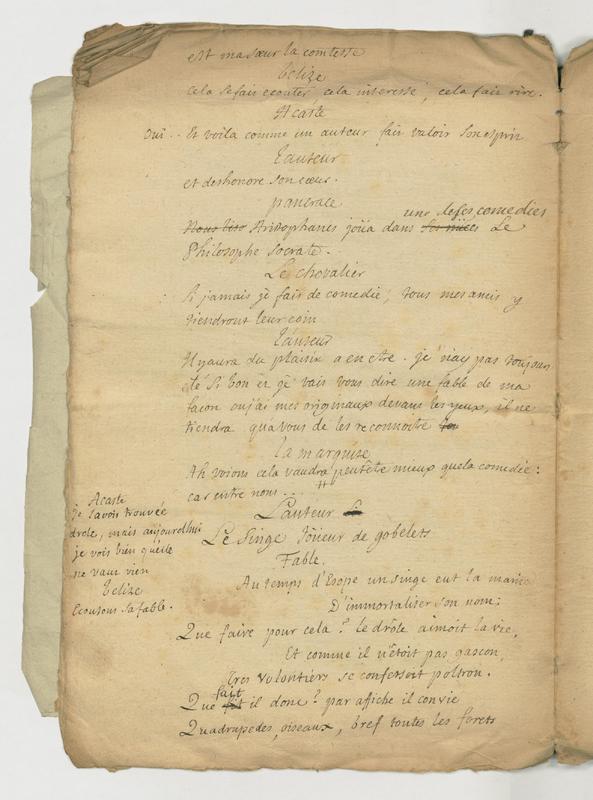 est ma sœur la comtesse
Belize
cela se fait ecouter cela interesse, cela fait rire.
Acaste
oui.. Et voila comme un auteur fait valoir son esprit
L'auteur
et deshonore son cœur.
pancrace
une de ses comedies
Nous Aristophanes joüa dans Le
Philosophe Socrate.
Le chevalier
Si jamais je fais de comedie, tous mes amis y
tiendront leur coin
L'auteur
Il y aura du plaisir a en etre. je n'ay pas toujours
été si bon et je vais vous dire une fable de ma
façon ou j'ai mes originaux devant les yeux, il ne
tiendra qu'a vous de les reconnoitre
La marquise
Ah voions cela vaudra peutétre mieux que la comedie:
car entre nous... #
Acaste
je l'avois trouvée
drole, mais aujourdhui
je vois bien qu'elle
ne vaut rien
Belize
Ecoutons sa fable.
L'auteur
Le Singe Joüeur de gobelets
Fable.
Au temps d'Esope un singe eut la manie
D'immortaliser son nom;
Que faire pour cela? le drôle aimoit la vie,
Et comme il n'étoit pas gascon,
Tres volontiers se confessoit poltron.
fait
Que fit il donc? par affiche il convie
Quadrupedes, oiseaux, bref toutes les forets